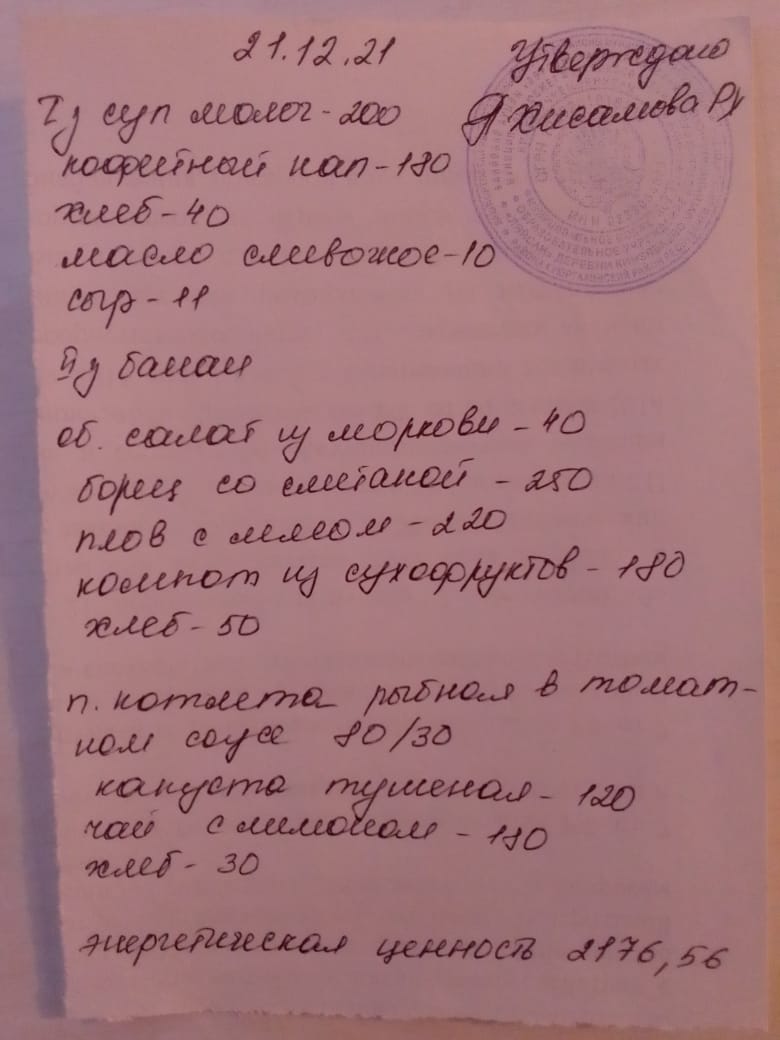 21.12.21
Утверждаю
Хисамова РХ
Iз суп молоч - 200
кофейный нап - 180
хлеб - 40
масло сливочное - 10
сыр - 11
IIз банан
об. салат из моркови - 40
борщ со сметаной - 250
плов с мясом - 220
компот из сухофруктов - 180
хлеб - 50
п. котлета рыбная в томат-
ном соусе 80/30
капуста тушеная - 120
чай с лимоном - 180
хлеб - 30
энергетическая ценность 2176,56